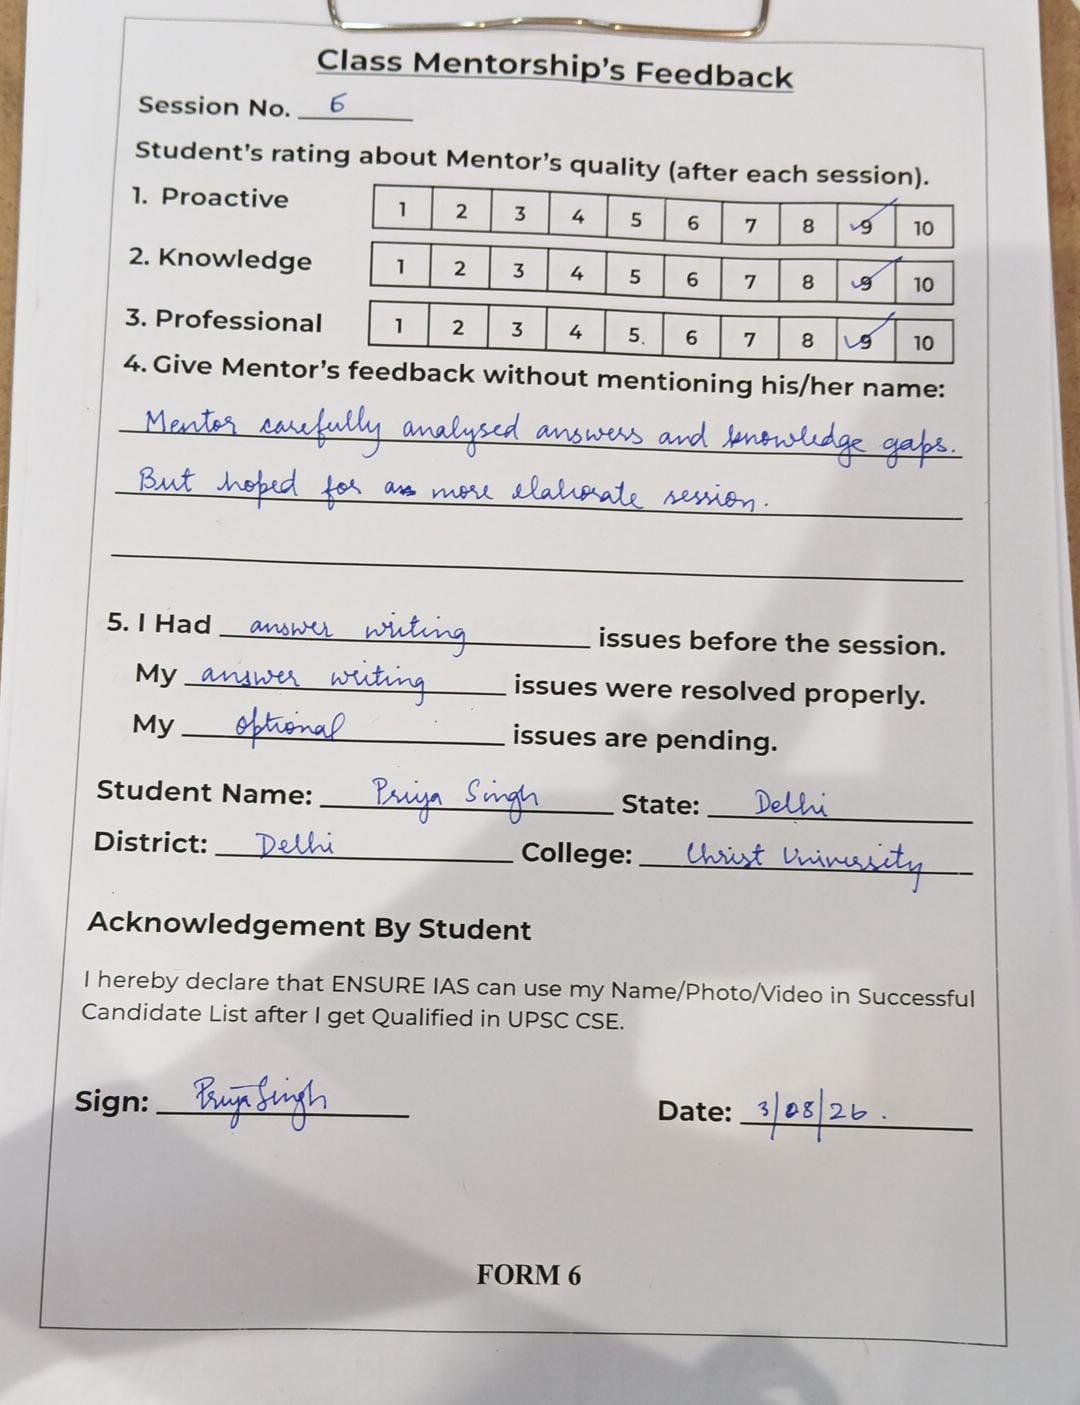 Class Mentorship's Feedback
Session No. 6
Student's rating about Mentor's quality (after each session).
1. Proactive 1 2 3 4 5 6 7 8 9 10
2. Knowledge 1 2 3 4 5 6 7 8 9 10
3. Professional 1 2 3 4 5. 6 7 8 9 10
4. Give Mentor's feedback without mentioning his/her name:
Mentor carefully analysed answers and knowledge gaps.
But hoped for more elaborate session.
5. I Had answer writing issues before the session.
My answer writing issues were resolved properly.
My optional issues are pending.
Student Name: Priya Singh State: Delhi
District: Delhi College: Christ University
Acknowledgement By Student
I hereby declare that ENSURE IAS can use my Name/Photo/Video in Successful
Candidate List after I get Qualified in UPSC CSE.
Sign: Priya Singh Date: 3/08/26.
FORM 6